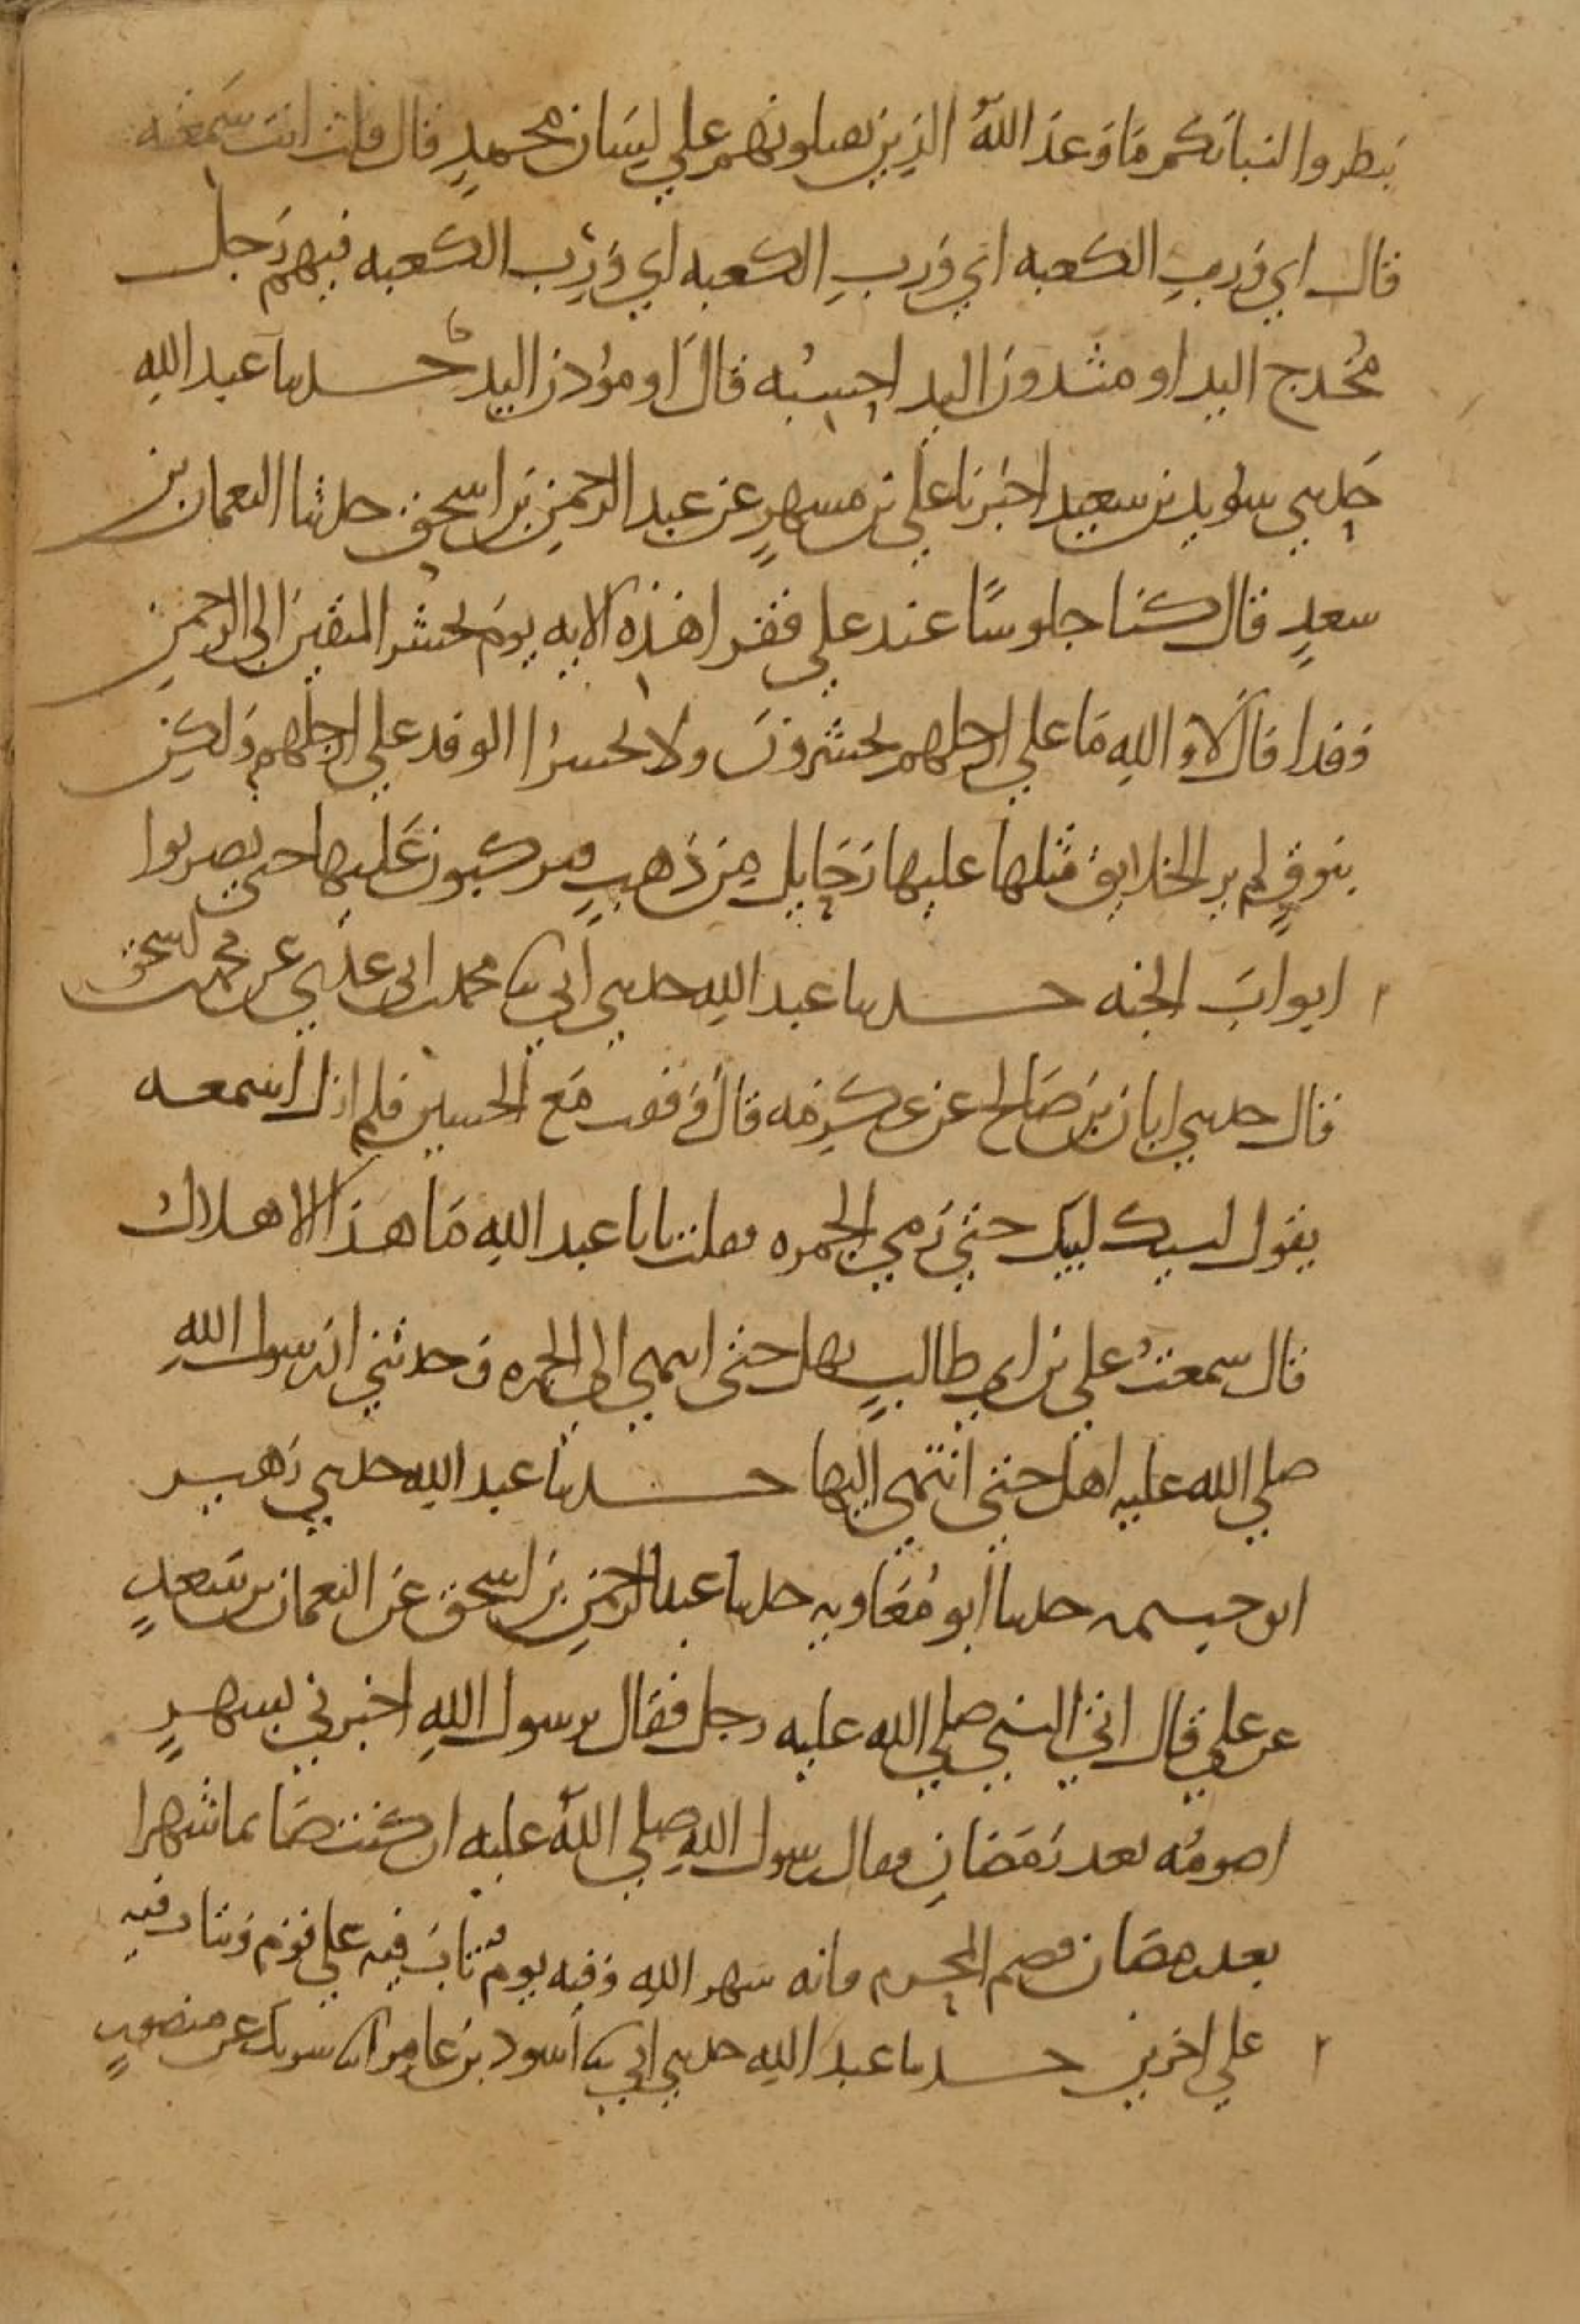 تبطروا لنباتكم ما وعد الله الذين يصلونهم علي لسان محمد قال قلت انت سمعته
قال اي ورب الكعبه اي ورب الكعبه اي ورب الكعبه فيهم رجل
مخدج اليد او مثدون اليد احسبه قال او مؤدن اليد حدثنا عبد الله
حدثني سويد بن سعيد اخبرنا علي بن مسهر عن عبد الرحمن بن اسحق حدثنا النعمان بن
سعد قال كنا جلوسا عند علي فقرا هذه الايه يوم نحشر المتقين الى الرحمن
وفدا قال لا والله ما علي ارجلهم يحشرون ولا يحشر الوفد علي ارجلهم ولكن
بنوق لم ير الخلايق مثلها عليها رحايل من ذهب فيركبون عليها حتى يضربوا
ابواب الجنه حدثنا عبد الله حدثني ابي ثنا محمد بن ابي عدي عن محمد بن اسحق
قال حدثني ابان بن صالح عن عكرمه قال وقفت مع الحسين فلم ازل اسمعه
يقول لبيك لبيك حتى رمي الجمره فقلت يابا عبد الله ما هذا الاهلال
قال سمعت علي بن ابي طالب يهل حتى انتهي الى الجمره وحدثني ان رسول الله
صلي الله عليه اهل حتى انتهى اليها حدثنا عبد الله حدثني زهير
ابو خيثمه حدثنا ابو معاويه حدثنا عبد الرحمن بن اسحق عن النعمان بن سعد
عن علي قال اتى النبي صلي الله عليه رجل فقال يرسول الله اخبرني بشهر
اصومه بعد رمضان فقال رسول الله صلي الله عليه ان كنت صايما شهرا
بعد رمضان فصم المحرم فانه شهر الله وفيه يوم تاب فيه علي قوم ويتاب فيه
علي اخرين حدثنا عبد الله حدثني ابي ثنا اسود بن عامر انا شريك عن منصور